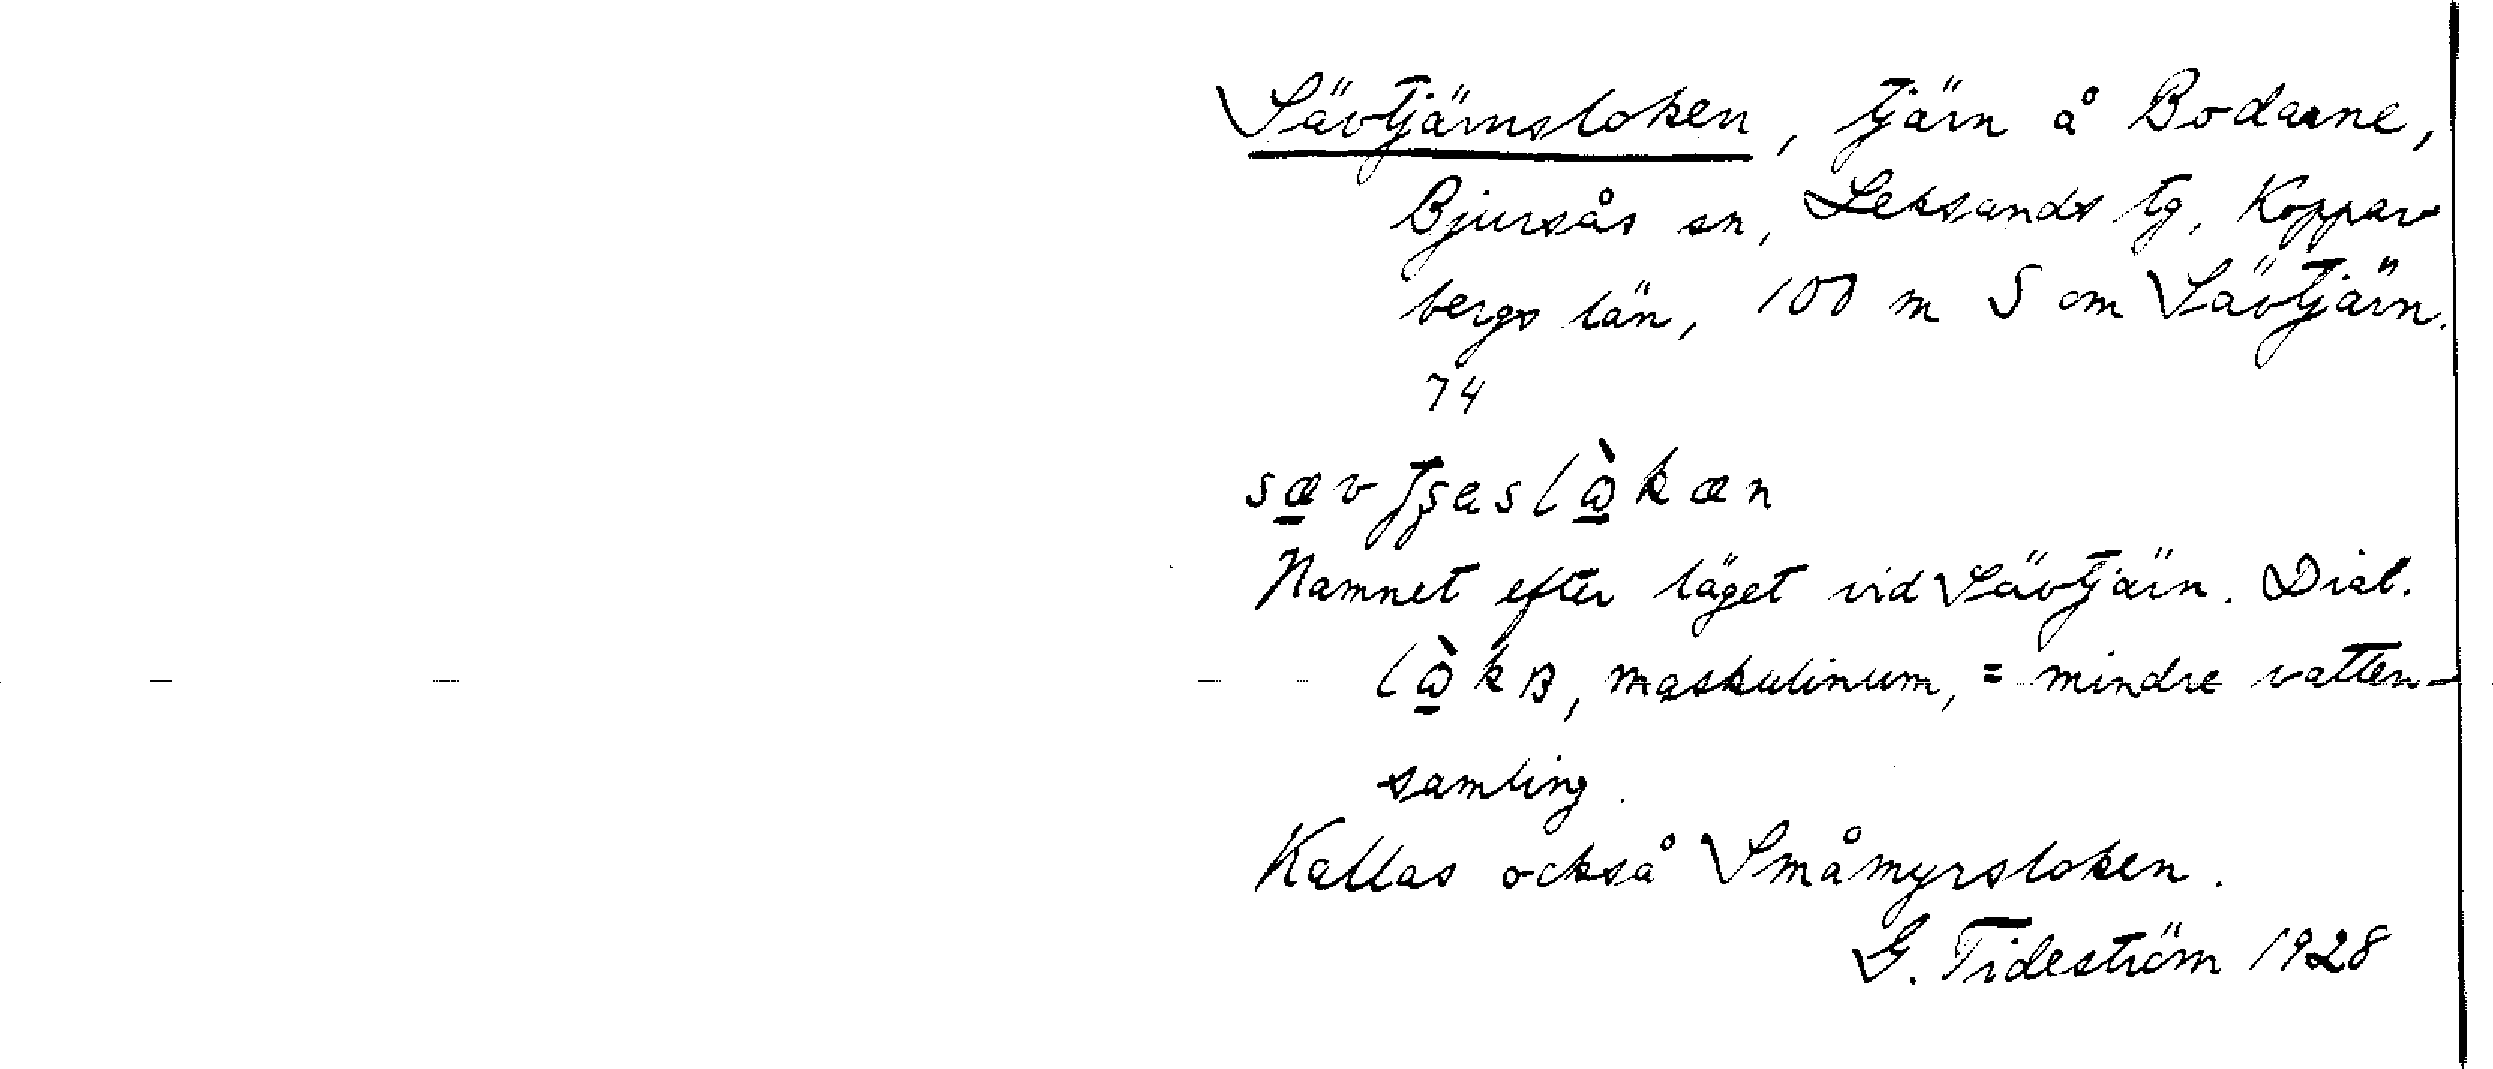 Sävtjärnsloken, tjärn å Bodarne,
Bjursås sn, Leksands tg, Koppar-
bergs län, 100 m S om Sävtjärn.
74
Namnet efter läget vid Sävtjärn. Dial.
maskulinum, = mindre vatten-
samling.
Kallas också Småmyrsloken.
G. Tideström 1928